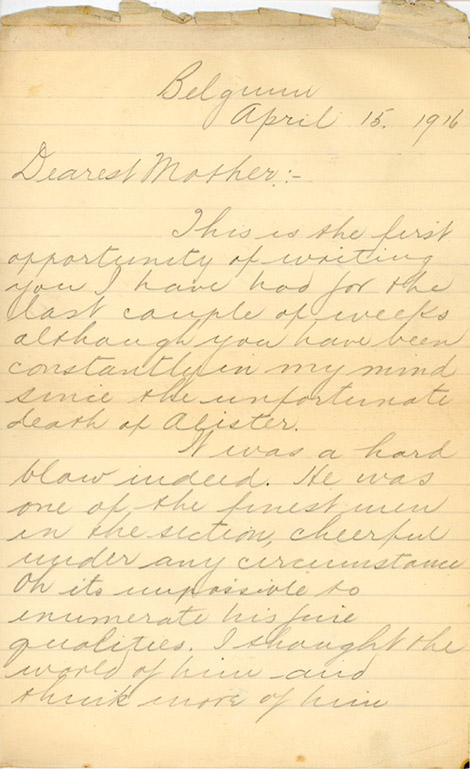 Belgium
April 15. 1916
Dearest Mother:-
This is the first
opportunity of writing
you I have had for the
last couple of weeks
although you have been
constantly in my mind
since the unfortunate
death of Alister.
It was a hard
blow indeed. He was
one of the finest men
in the section, cheerful
under any circumstance
Oh its impossible to
enumerate his fine
qualities. I thought the
world of him and
think more of him